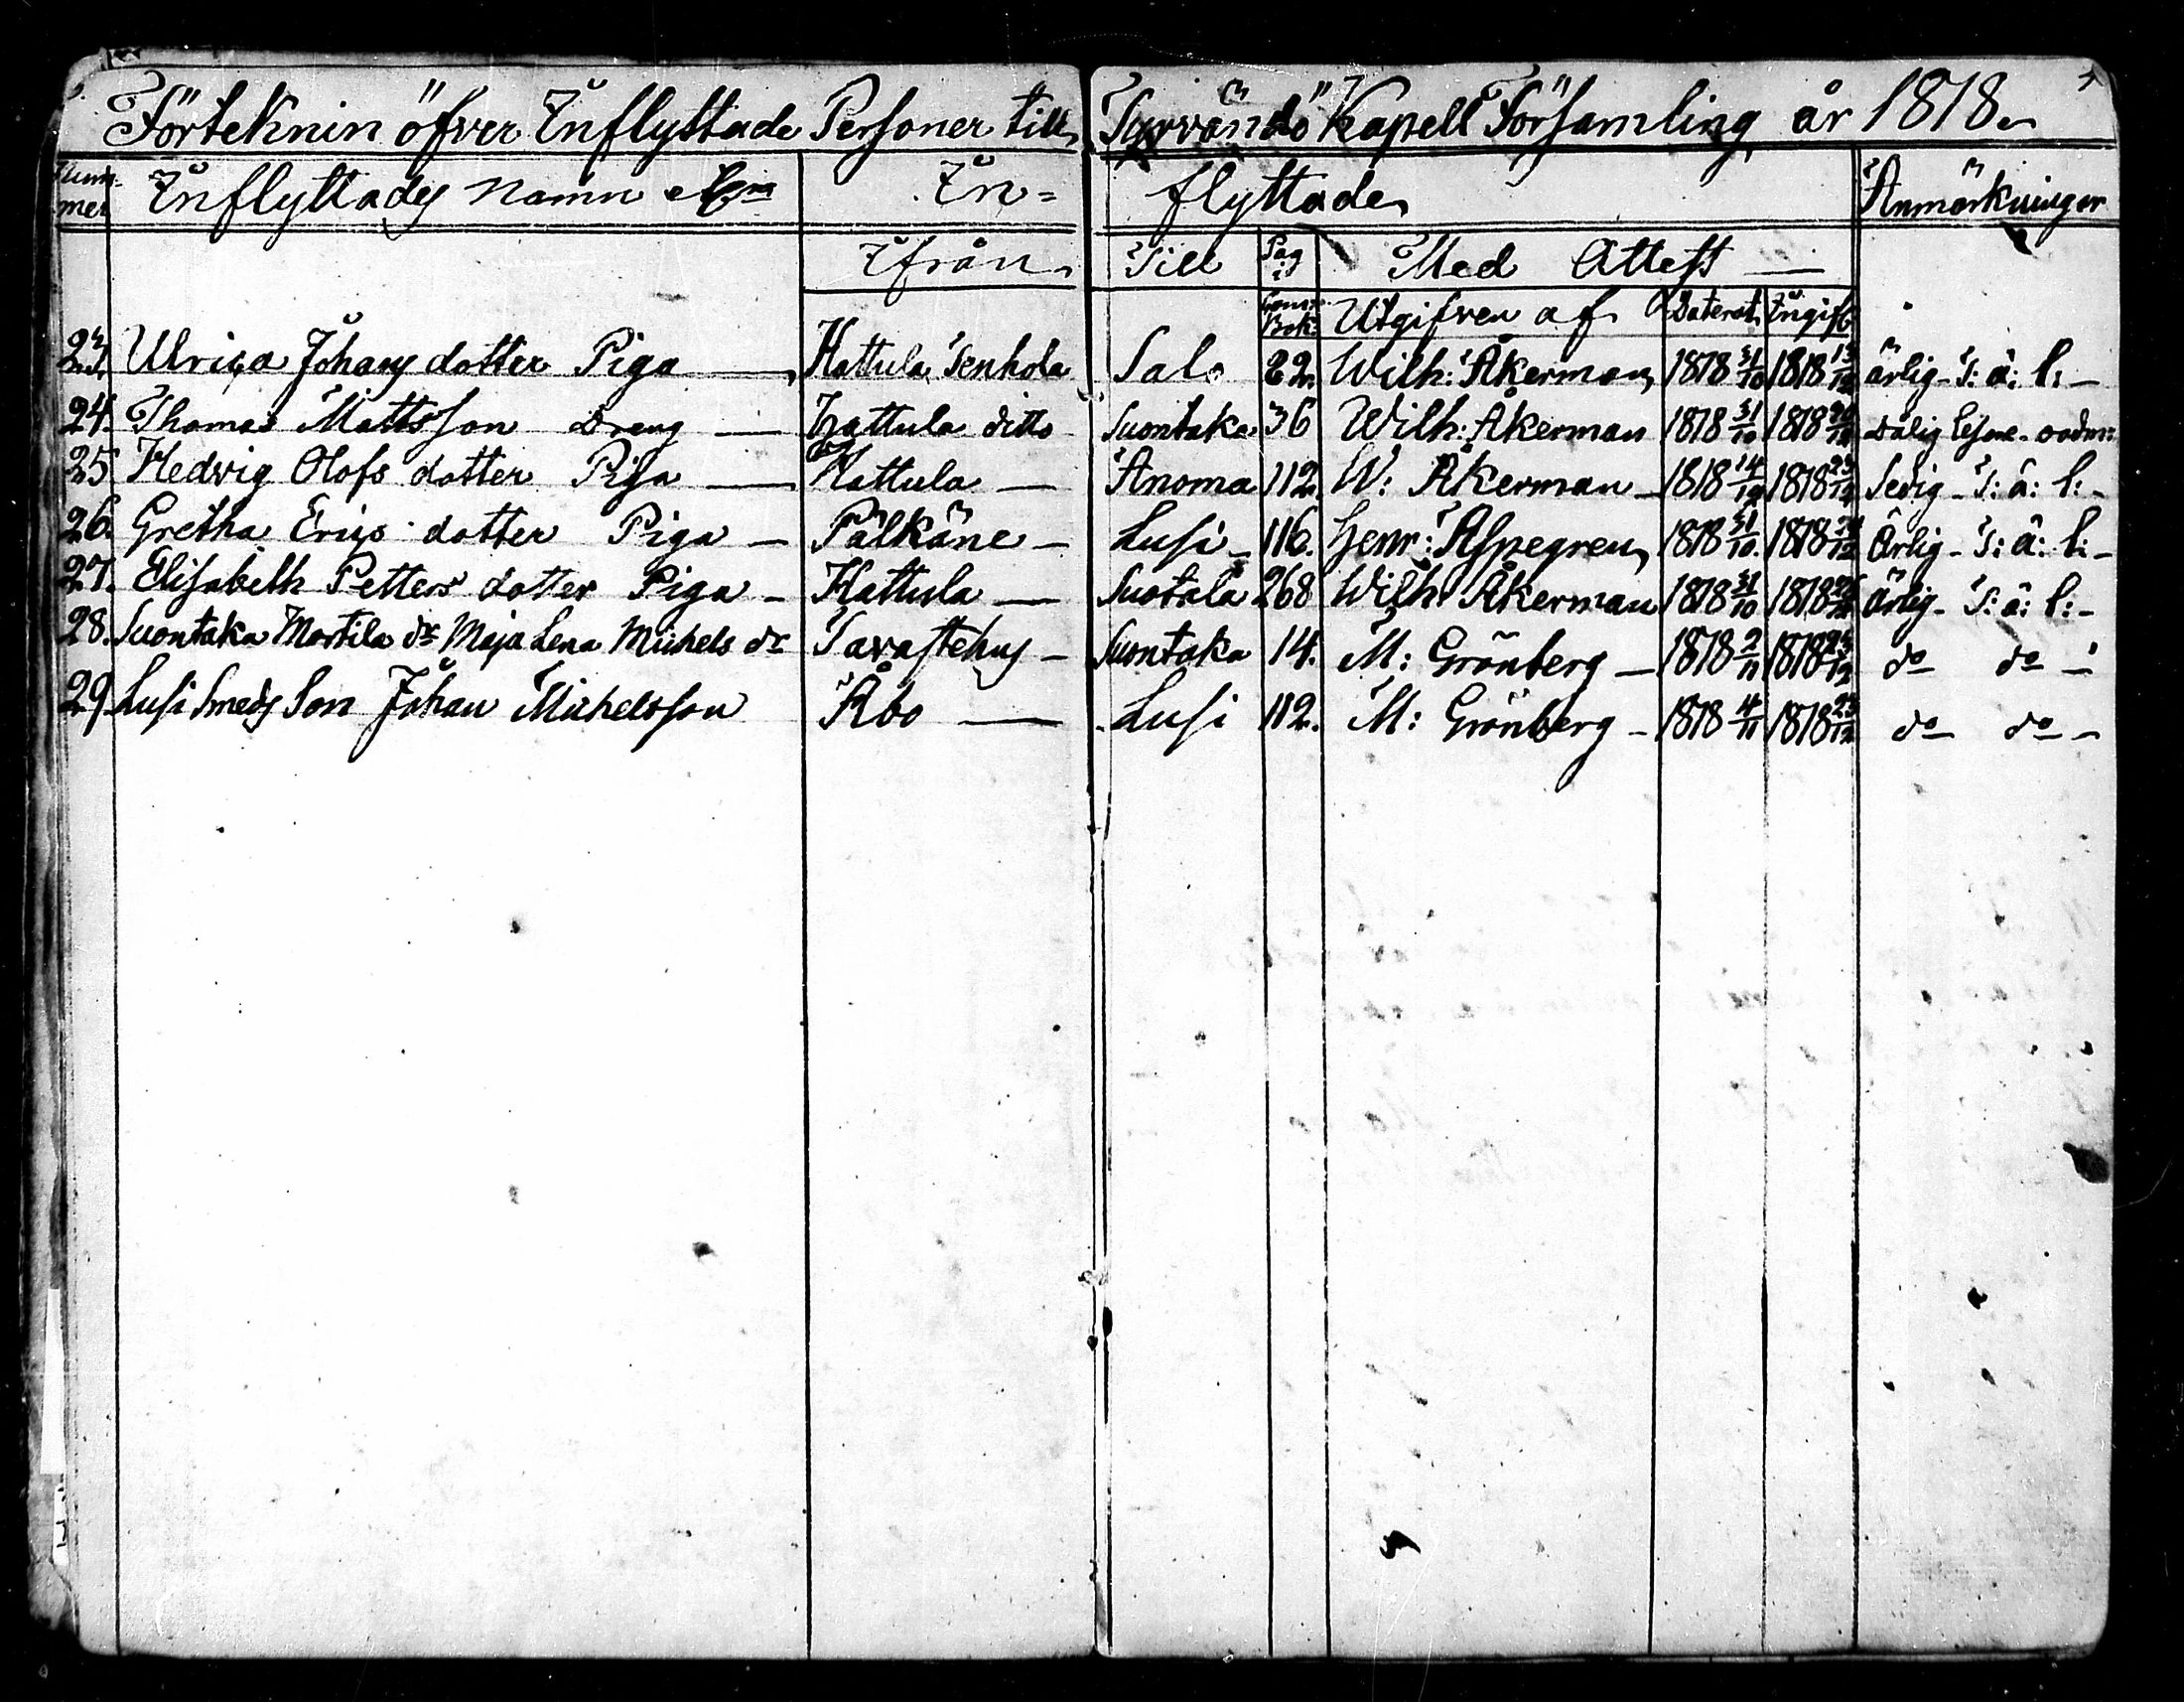 Förteknin öfver Inflyttade Personer till Tyrvändö Kapell Församling år 1818.
Num-mer Inflyttades Namn In= flyttade Anmärkningar
Ifrån Till Pag i Med Attest
Com: Bok: Utgifven af Daterat Ingift
23. Ulrica Johans dotter Piga — Hattula Tenhola Salo 22. Wilh: Åkerman 1818 31/10 1818 13/12 ärlig - S: ä: l: -
24. Thomas Mattsson Dreng — Hattula ditto Suontaka 36 Wilh: Åkerman 1818 31/10 1818 20/12 dålig
25 Hedvig Olofs dotter Piga — Hattula — Anoma 112. W: Åkerman - 1818 14/10 1818 23/12 Sedig - S: ä: l: -
26. Gretha Erics dotter Piga — Pälkäne - Lusi - 116. Henr: Aspegren 1818 31/10. 1818 /12 Ärlig - S: ä: l: -
27. Elisabeth Petters dotter Piga - Hattula — Suotala 268 Wilh: Åkerman 1818 31/10 1818 ärlig - S: ä: l: -
28. Suontaka Martila dr Maja Lena Michels dr Tavastehus - Suontaka 14. M: Grönberg — 1818 2/11 1818 23/12 do do -
29. Lusi Smeds Son Johan Michelsson Åbo — Lusi 112. M: Grönberg - 1818 4/11 1818 23/12 do do -